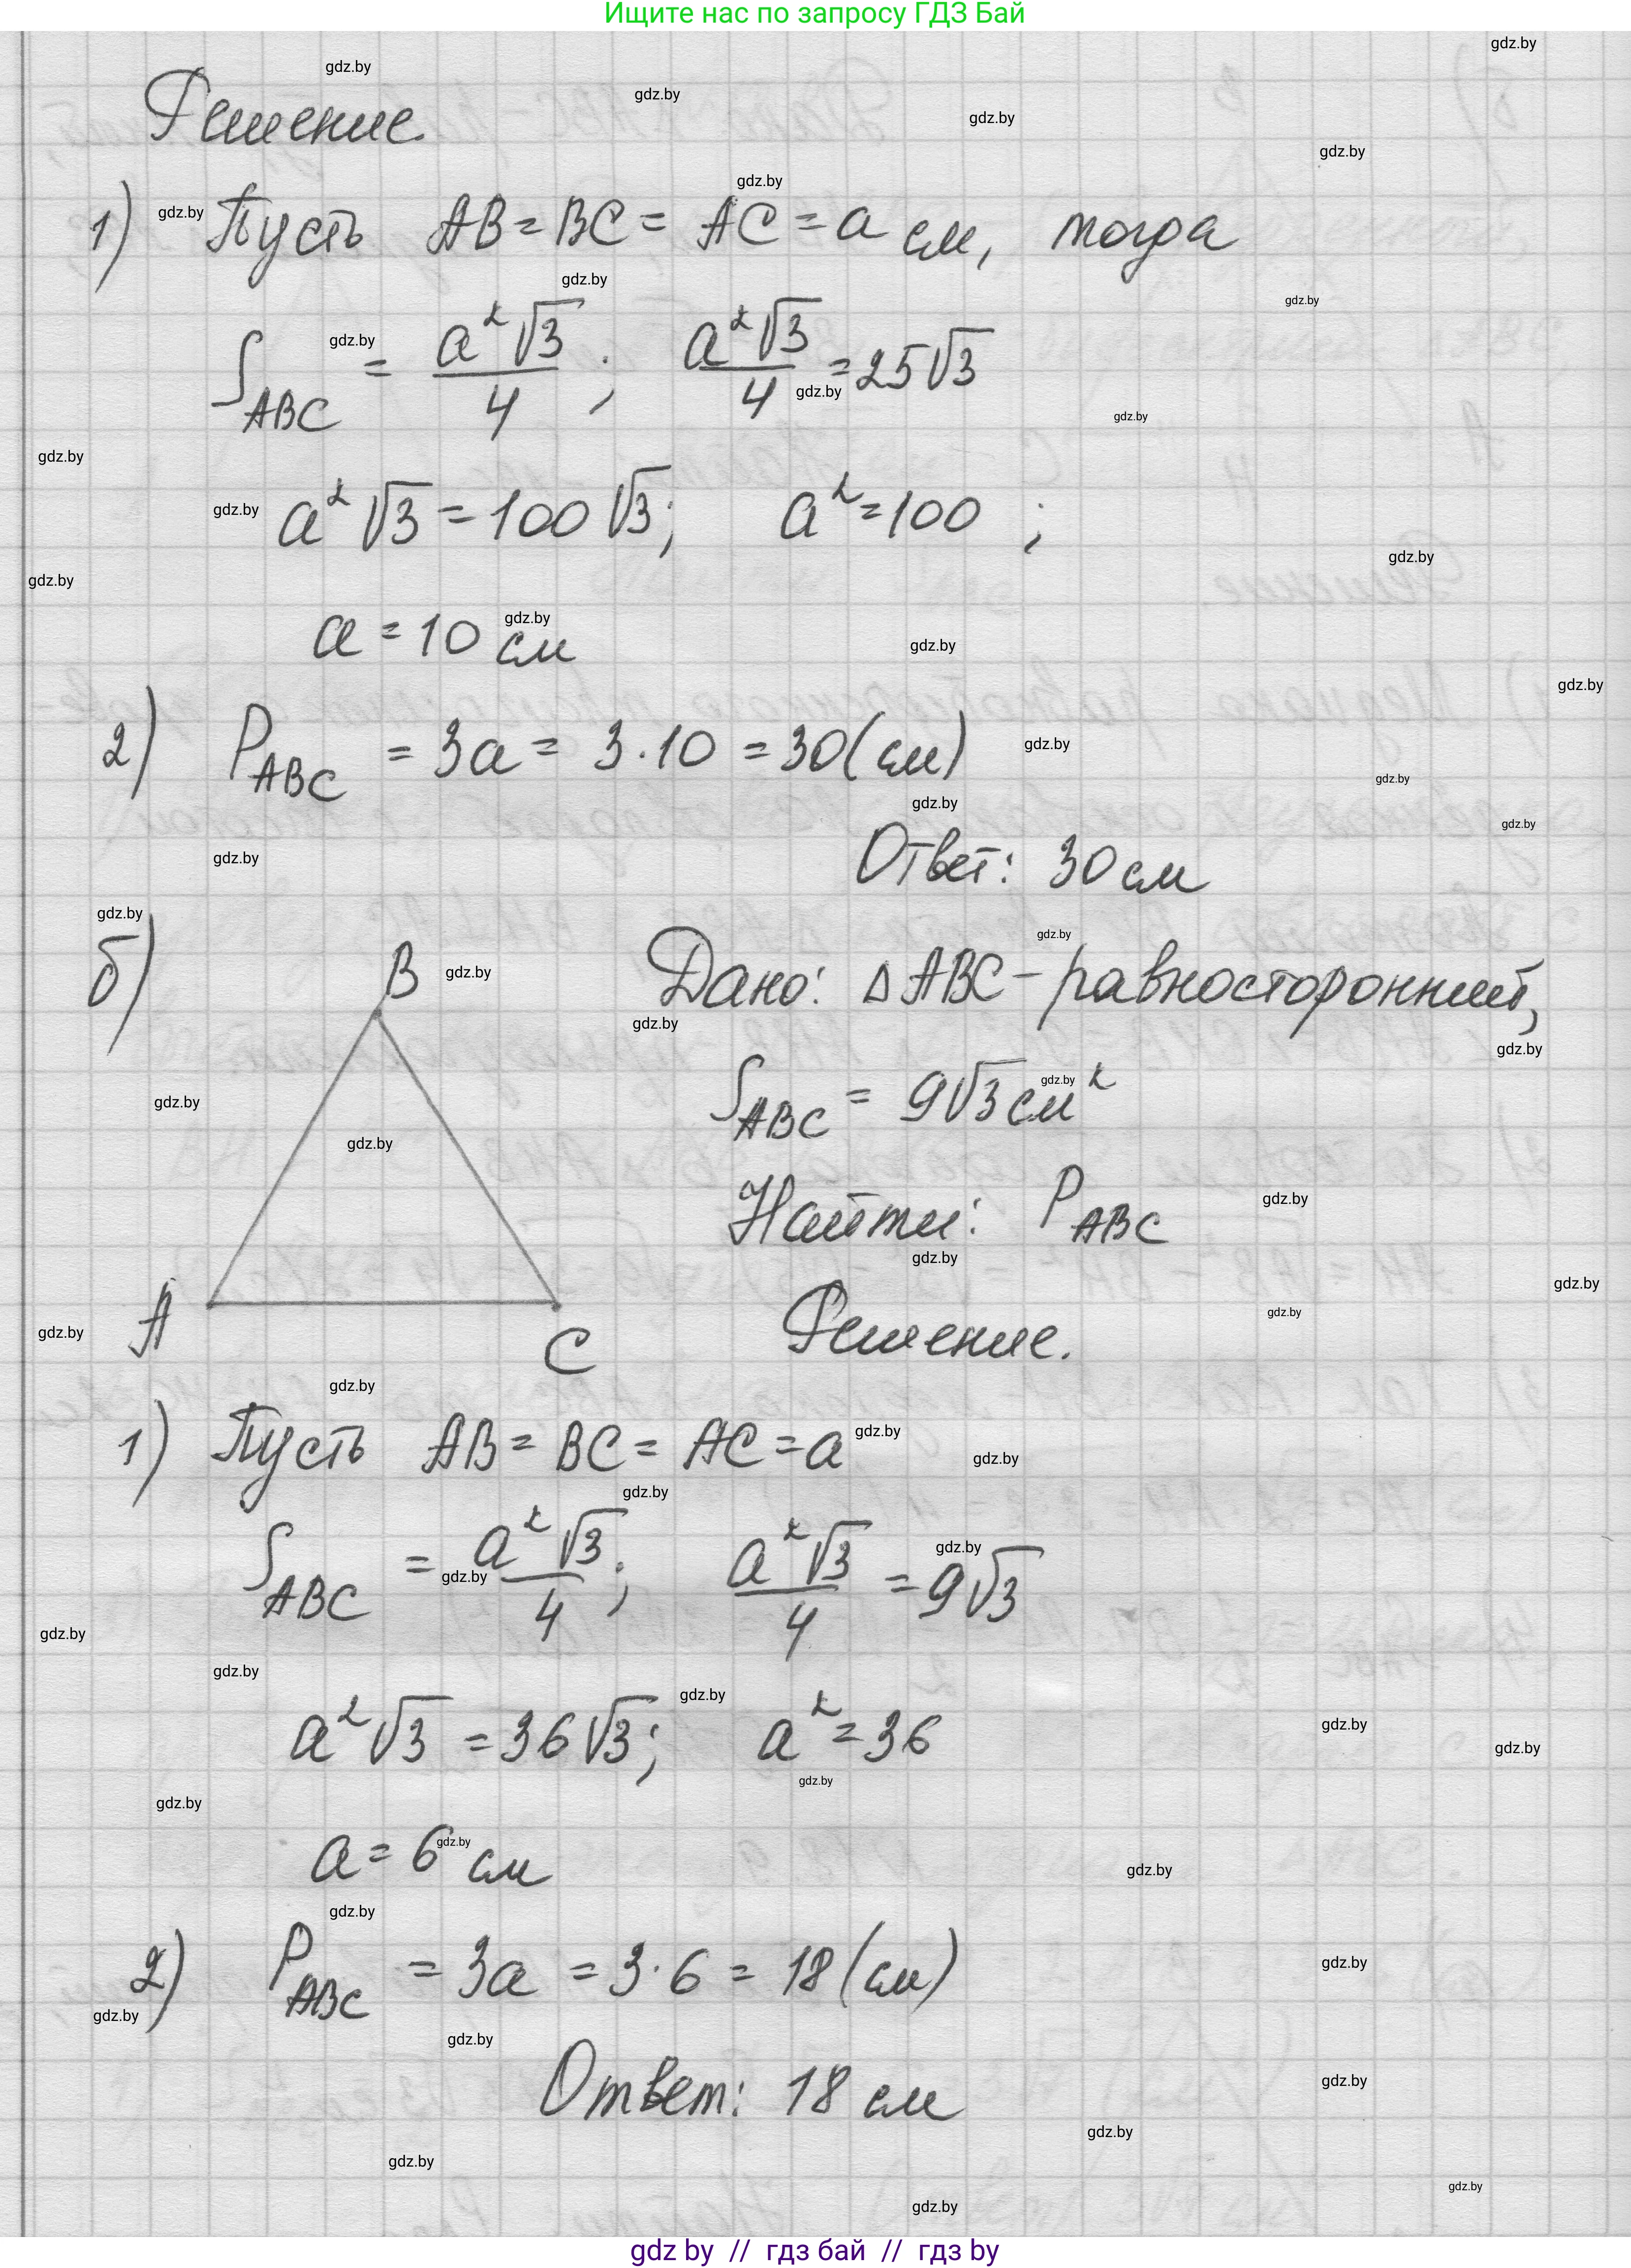 Ищите нас по запросу ГДЗ Бай
Решение.
1) Пусть AB = BC = AC = a см, тогда
S_ABC = a²√3/4; a²√3/4 = 25√3
a²√3 = 100√3; a² = 100;
a = 10 см
2) P_ABC = 3a = 3·10 = 30 (см)
Ответ: 30 см
б) B Дано: △ABC - равносторонний,
S_ABC = 9√3 см²
Найти: P_ABC
A C Решение.
1) Пусть AB = BC = AC = a
S_ABC = a²√3/4; a²√3/4 = 9√3
a²√3 = 36√3; a² = 36
a = 6 см
2) P_ABC = 3a = 3·6 = 18 (см)
Ответ: 18 см
gdz by // гдз бай // гдз by